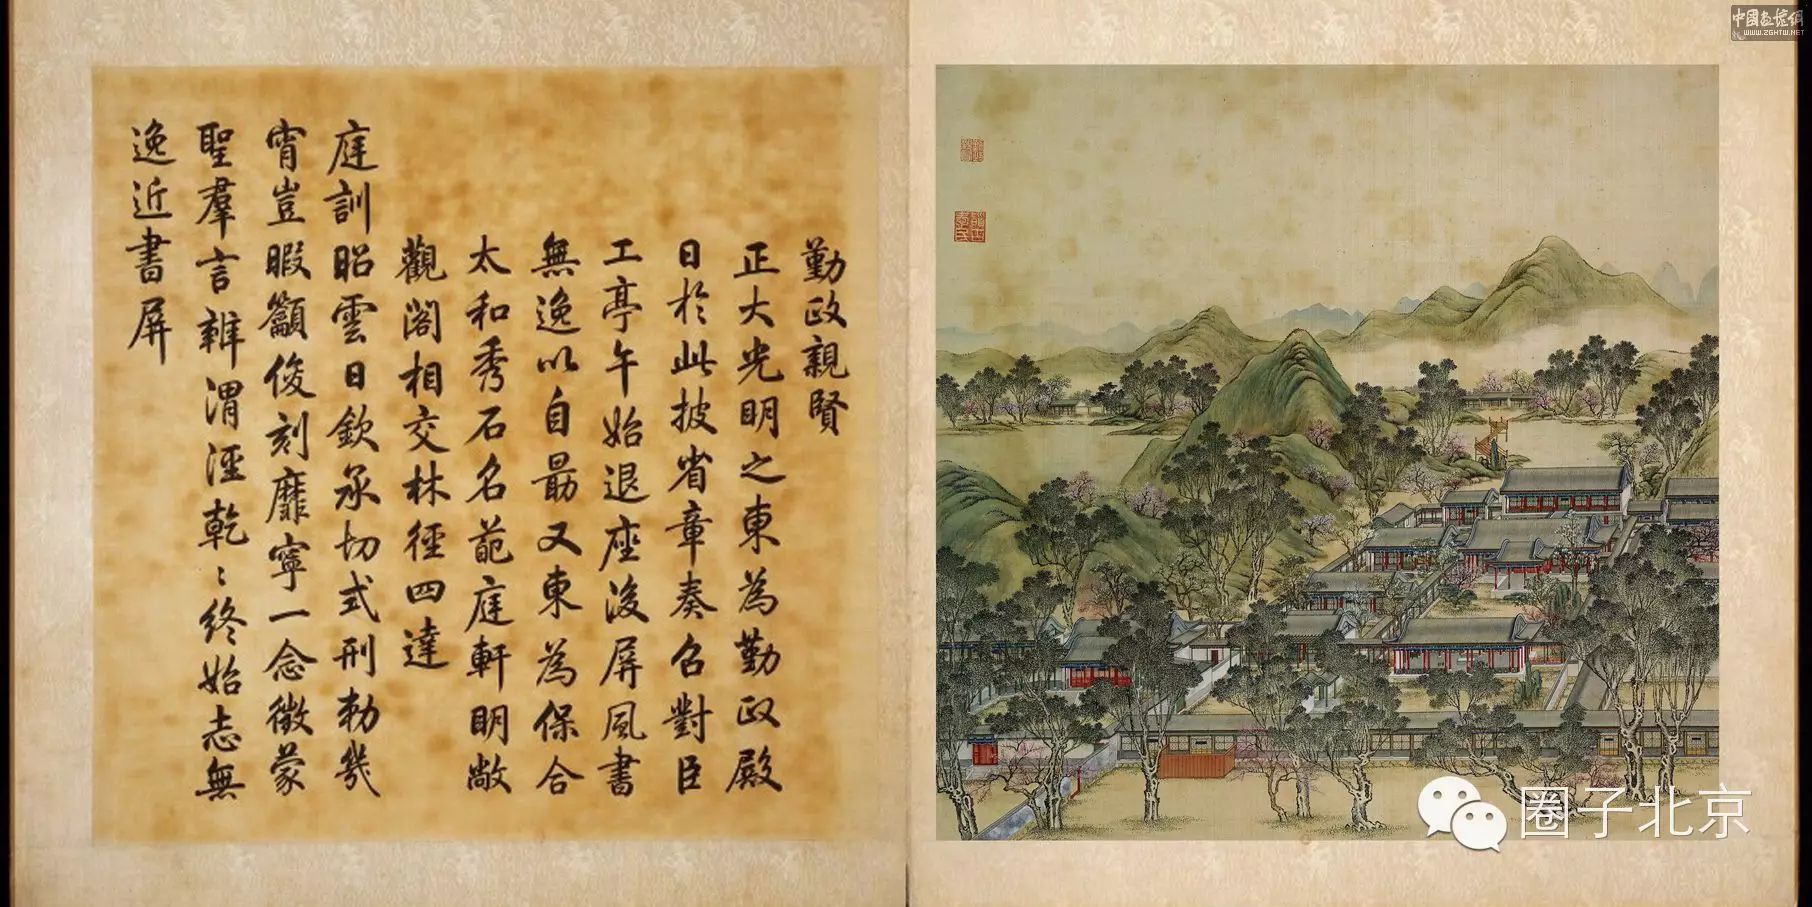 勤政親賢
正大光明之東為勤政殿
日於此披省章奏召對臣
工亭午始退座後屏風書
無逸以自勗又東為保合
太和秀石名葩庭軒明敞
觀閣相交林徑四達
庭訓昭雲日欽承切式刑勅幾
宵豈暇籲俊刻靡寧一念徵蒙
聖羣言辨渭涇乾〻終始志無
逸近書屏
WWW.ZGHTW.NET
圈子北京